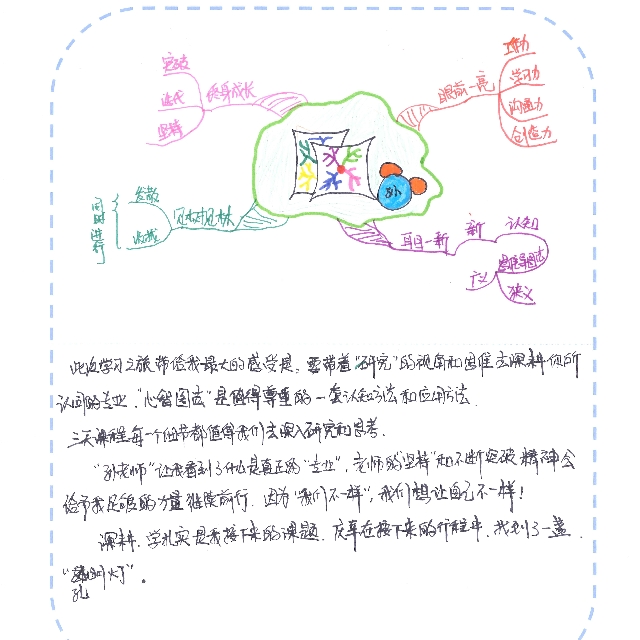 突破
迭代
坚持
终身成长
眼前一亮
工作力
学习力
沟通力
创造力
发散
收敛
同时进行
见树见林
孙
耳目一新
新
认知
思维导图法
广义
狭义
此次学习之旅带给我最大的感受是，要带着“研究”的视角和思维去深耕你所
认同的专业，“心智图法”是值得尊重的一套认知方法和应用方法.
三天课程每一个细节都值得我们去深入研究和思考.
“孙老师”让我看到了什么是真正的“专业”，老师的“坚持”和不断突破精神会
给予我足够的力量继续前行. 因为“我们不一样”，我们想让自己不一样！
深耕、学扎实是我接下来的课题. 庆幸在接下来的行程中，我找到了一盏
“明灯”.
孔